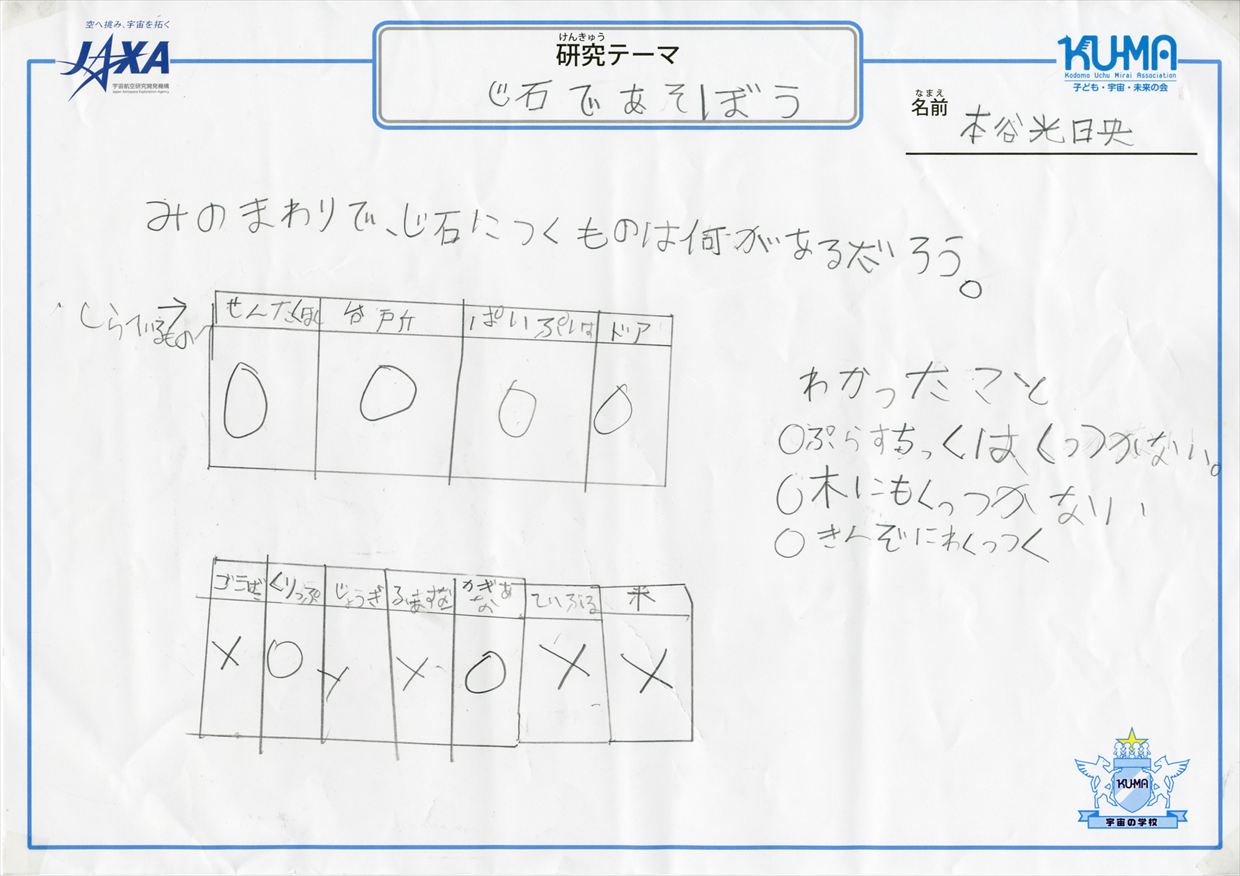 空へ挑み、宇宙を拓く
JAXA
宇宙航空研究開発機構
Japan Aerospace Exploration Agency
けんきゅう
研究テーマ
じ石であそぼう
KU-MA
Kodomo Uchu Mirai Association
子ども・宇宙・未来の会
なまえ
名前
本谷光日央
みのまわりで、じ石につくものは何があるだろう。
しらているもの→
せんたくばし 台戸斤 ぱいぷいす ドア
○ ○ ○ ○
わかったこと
○ぷらすちっくはくっつかない。
○木にもくっつかない
○きんぞにわくっつく
くりっぷ じょうぎ かぎあな ていぶる 木
× ○ × × ○ × ×
KU-MA
宇宙の学校